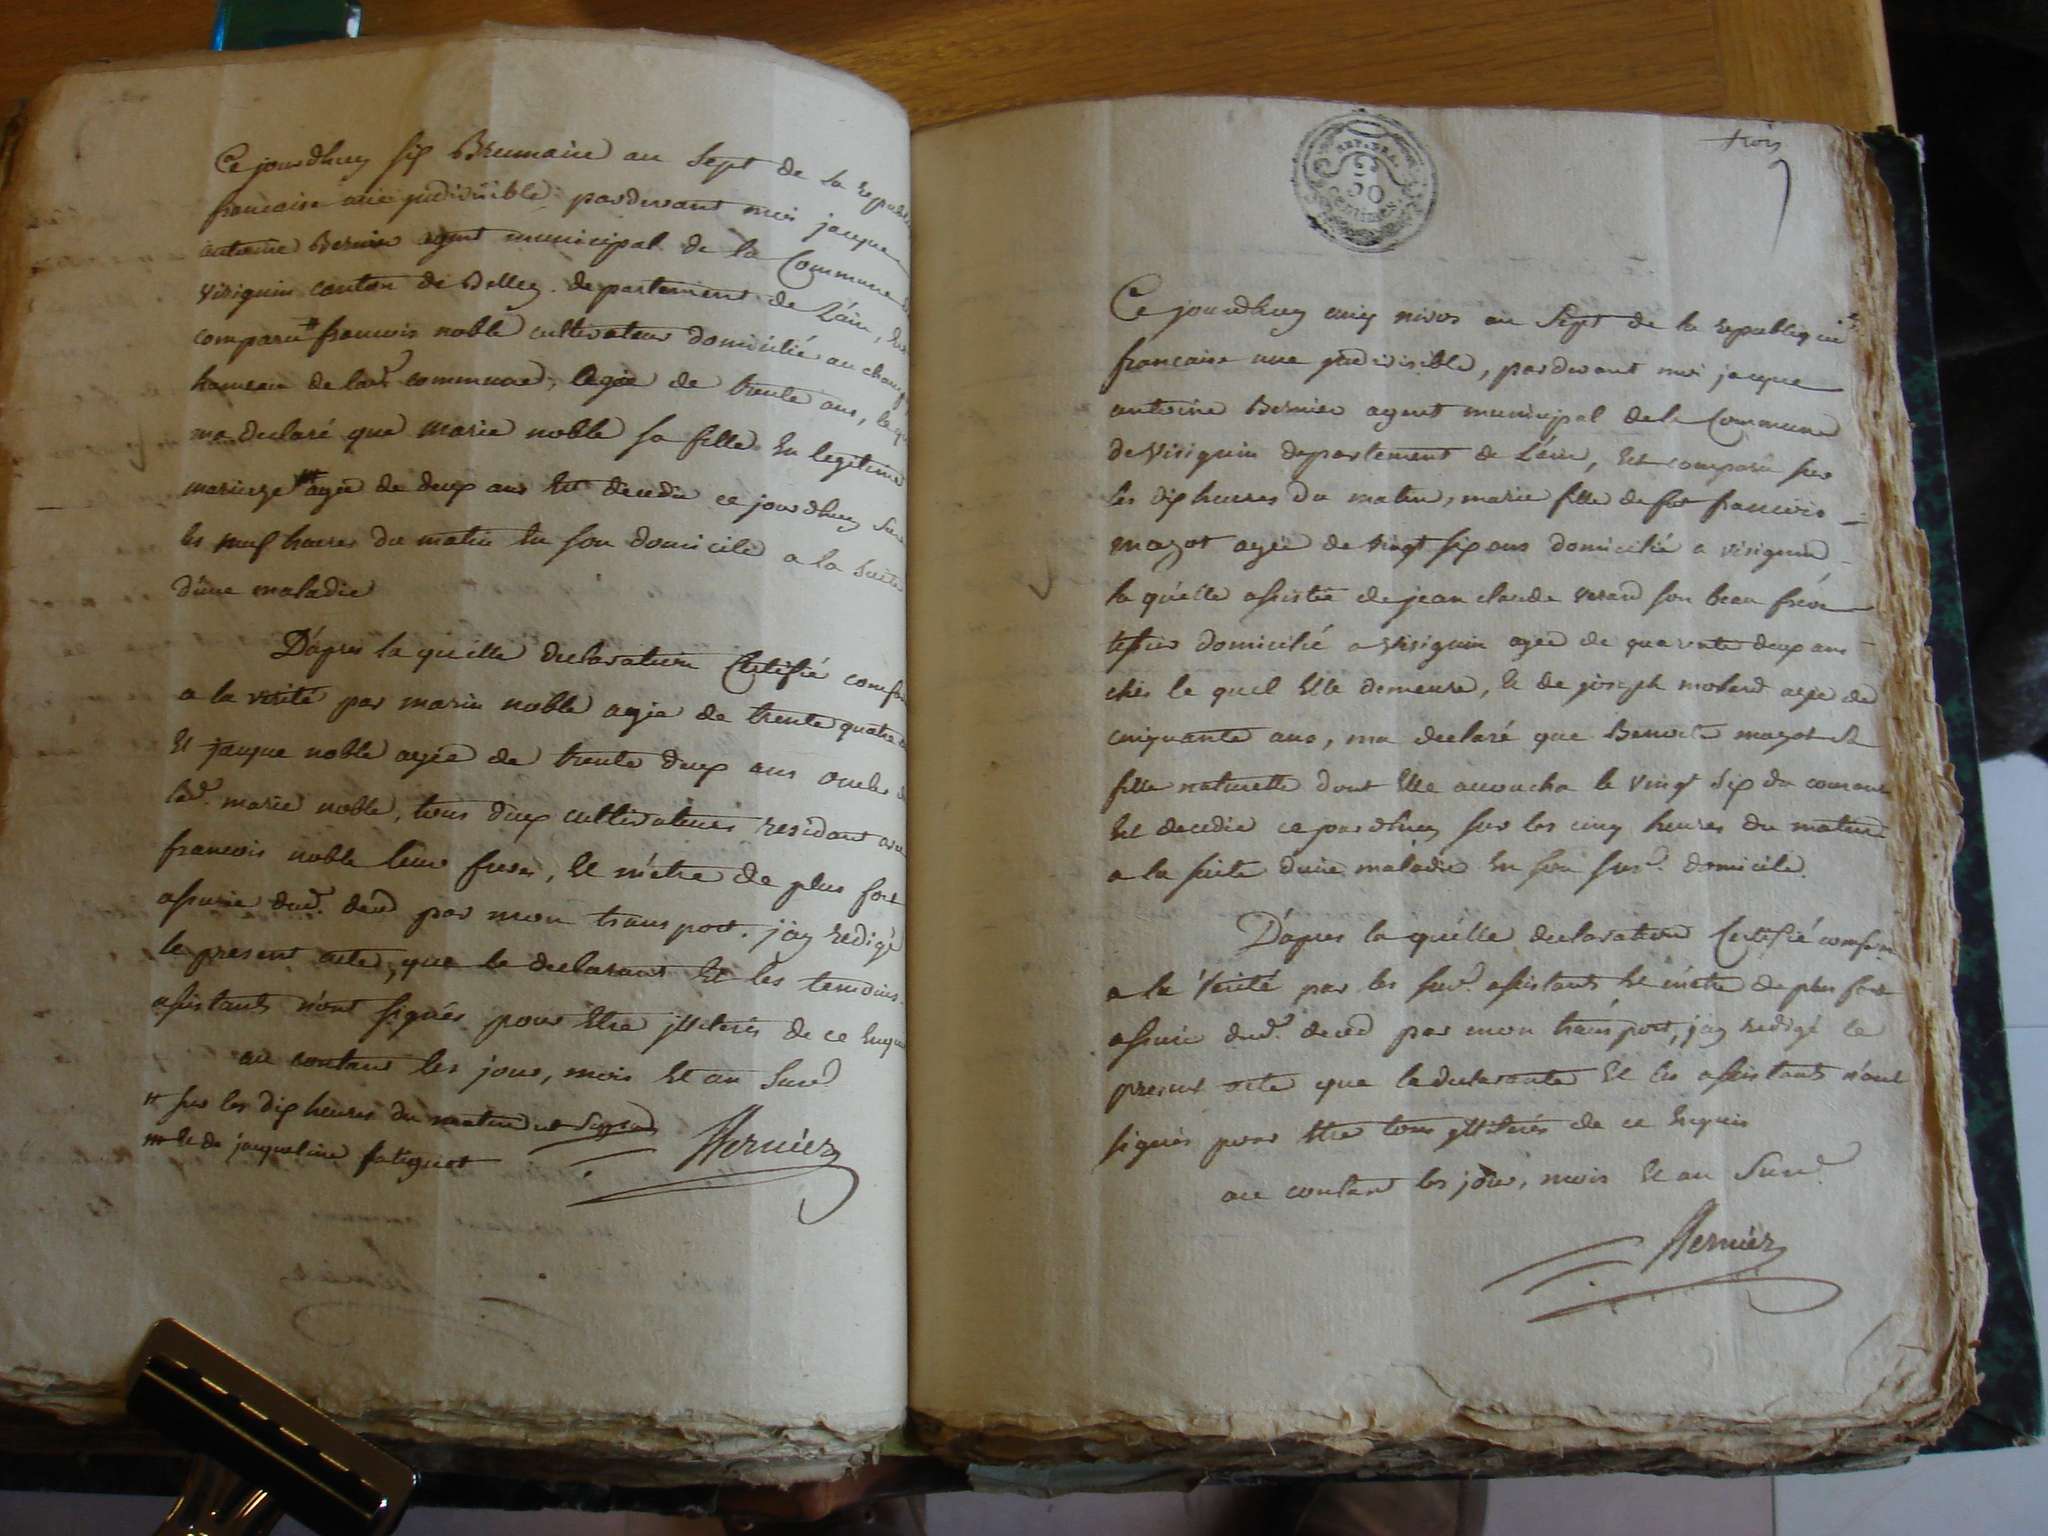 Ce jourdhuy six Brumaire an sept de la republi
francaise une jndivisible pardevant moi jacque
antoine Bernier agent municipal de la Commune de
virignin canton de Belley departement de L'áin, Est
comparu # francois noble cultivateur domicilié au
hameau de lad. commune, agée de trente ans, le
ma declaré que marie noble sa fille En legitime
mariage agée de deux ans Est décédée ce jourdhuy sur
les neuf heures du matin En son domicile a la suite
d'une maladie
D'apres la quélle declaration Certifié conf
a la vérité par marin noble agée de trente quatre
Et jacque noble agée de trente deux ans oncles de
lad. marie noble, tous deux cultivateurs residant avec
francois noble leur frere, Et m'etre de plus fort
assurée dud. deced par mon transport. j'ay redigé
le present acte, que le declarant Et les temoins
assistants n'ont signés pour Etre jlliterés de ce Enquis
au contant les jour, mois Et an Sus.d
# sur les dix heures du matin
Et de jacqueline fatiguet
Bernier
trois
REP. FRA.
50
centimes.
Ce jourdhuy cinq nivos an Sept de la republique
francaise une jndivisible, pardevant moi jacque
antoine Bernier agent municipal de la Commune
de virignin departement de L'áin, Est comparu sur
les dix heures du matin, marie fille de fut francois
mazot agée de vingt six ans domicilié a virignin
la quélle assistée de jean claude verard son beau frére
tessier domicilié a virignin agée de quarente deux ans
chés le quel Elle demeure, Et de joseph molard agée de
cinquante ans, ma declaré que Benoite mazot
fille naturelle dont Elle accoucha le vingt six du courant
Est decedée ce jourdhuy sur les cinq heures du matin
a la suite d'une maladie En son sus.d domicile.
D'apres la quélle declaration Certifié conform
a la verité par les sus.d assistants Et m'etre de plus fort
assurée dud. deced par mon transport, j'ay redigé le
present acte que la declarante Et les assistants n'ont
signés pour Etre tous jlliterés de ce Enquis
au contant les jour, mois Et an Sus.d
Bernier